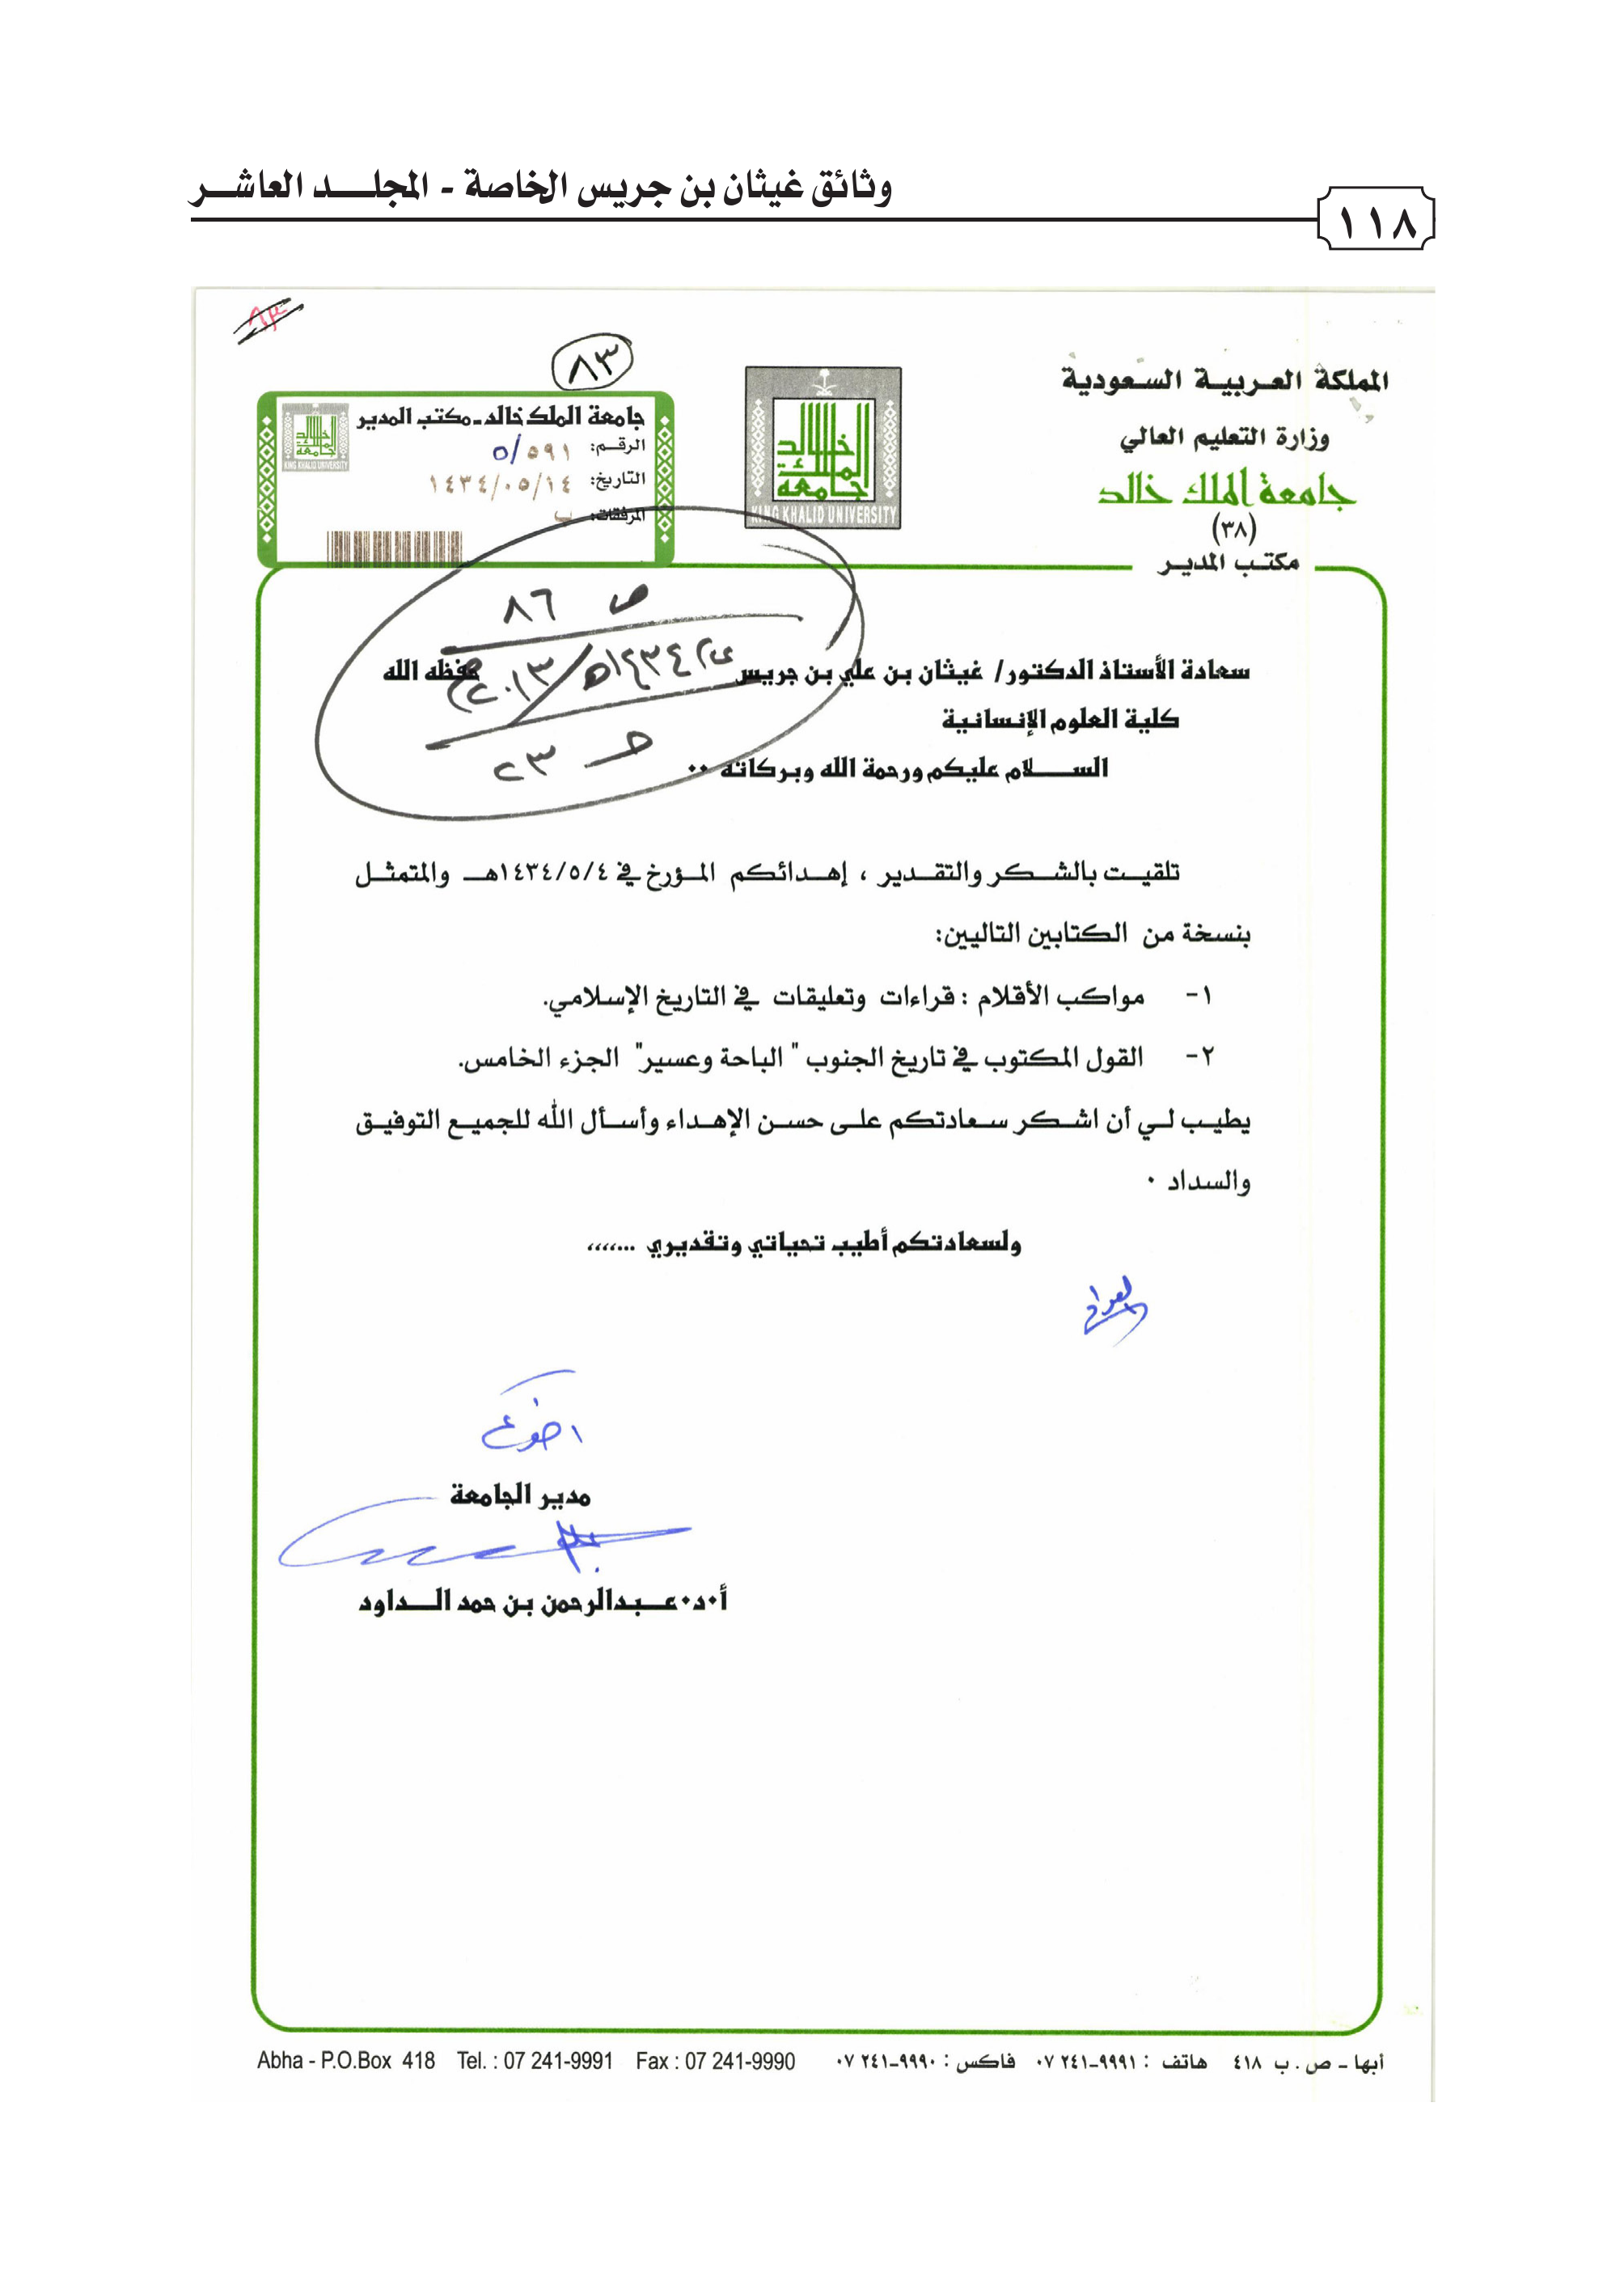 وثائق غيثان بن جريس الخاصة - المجلد العاشر
١١٨
المملكة العربية السعودية
وزارة التعليم العالي
جامعة الملك خالد
(٣٨)
مكتب المدير
جامعة الملك خالد
KING KHALID UNIVERSITY
٨٣
جامعة الملك خالد - مكتب المدير
الرقم: ٥/٥٩١
التاريخ: ١٤٣٤/٠٥/١٤
المرفقات: ب
KING KHALID UNIVERSITY
ص ٨٦
١٤٣٤هـ / ٢٠١٣م
حـ ٢٣
سعادة الأستاذ الدكتور/ غيثان بن علي بن جريس حفظه الله
كلية العلوم الإنسانية
السـلام عليكم ورحمة الله وبركاته ٠٠
تلقيت بالشكر والتقدير ، إهدائكم المؤرخ في ١٤٣٤/٥/٤هـ والمتمثل
بنسخة من الكتابين التاليين:
١- مواكب الأقلام : قراءات وتعليقات في التاريخ الإسلامي.
٢- القول المكتوب في تاريخ الجنوب " الباحة وعسير" الجزء الخامس.
يطيب لي أن اشكر سعادتكم على حسن الإهداء وأسأل الله للجميع التوفيق
والسداد ٠
ولسعادتكم أطيب تحياتي وتقديري ...،،،،
مدير الجامعة
أ٠د٠عبدالرحمن بن حمد الداود
أبها - ص . ب ٤١٨ هاتف : ٩٩٩١-٢٤١ ٠٧ فاكس : ٩٩٩٠-٢٤١ ٠٧
Abha - P.O.Box 418 Tel. : 07 241-9991 Fax : 07 241-9990